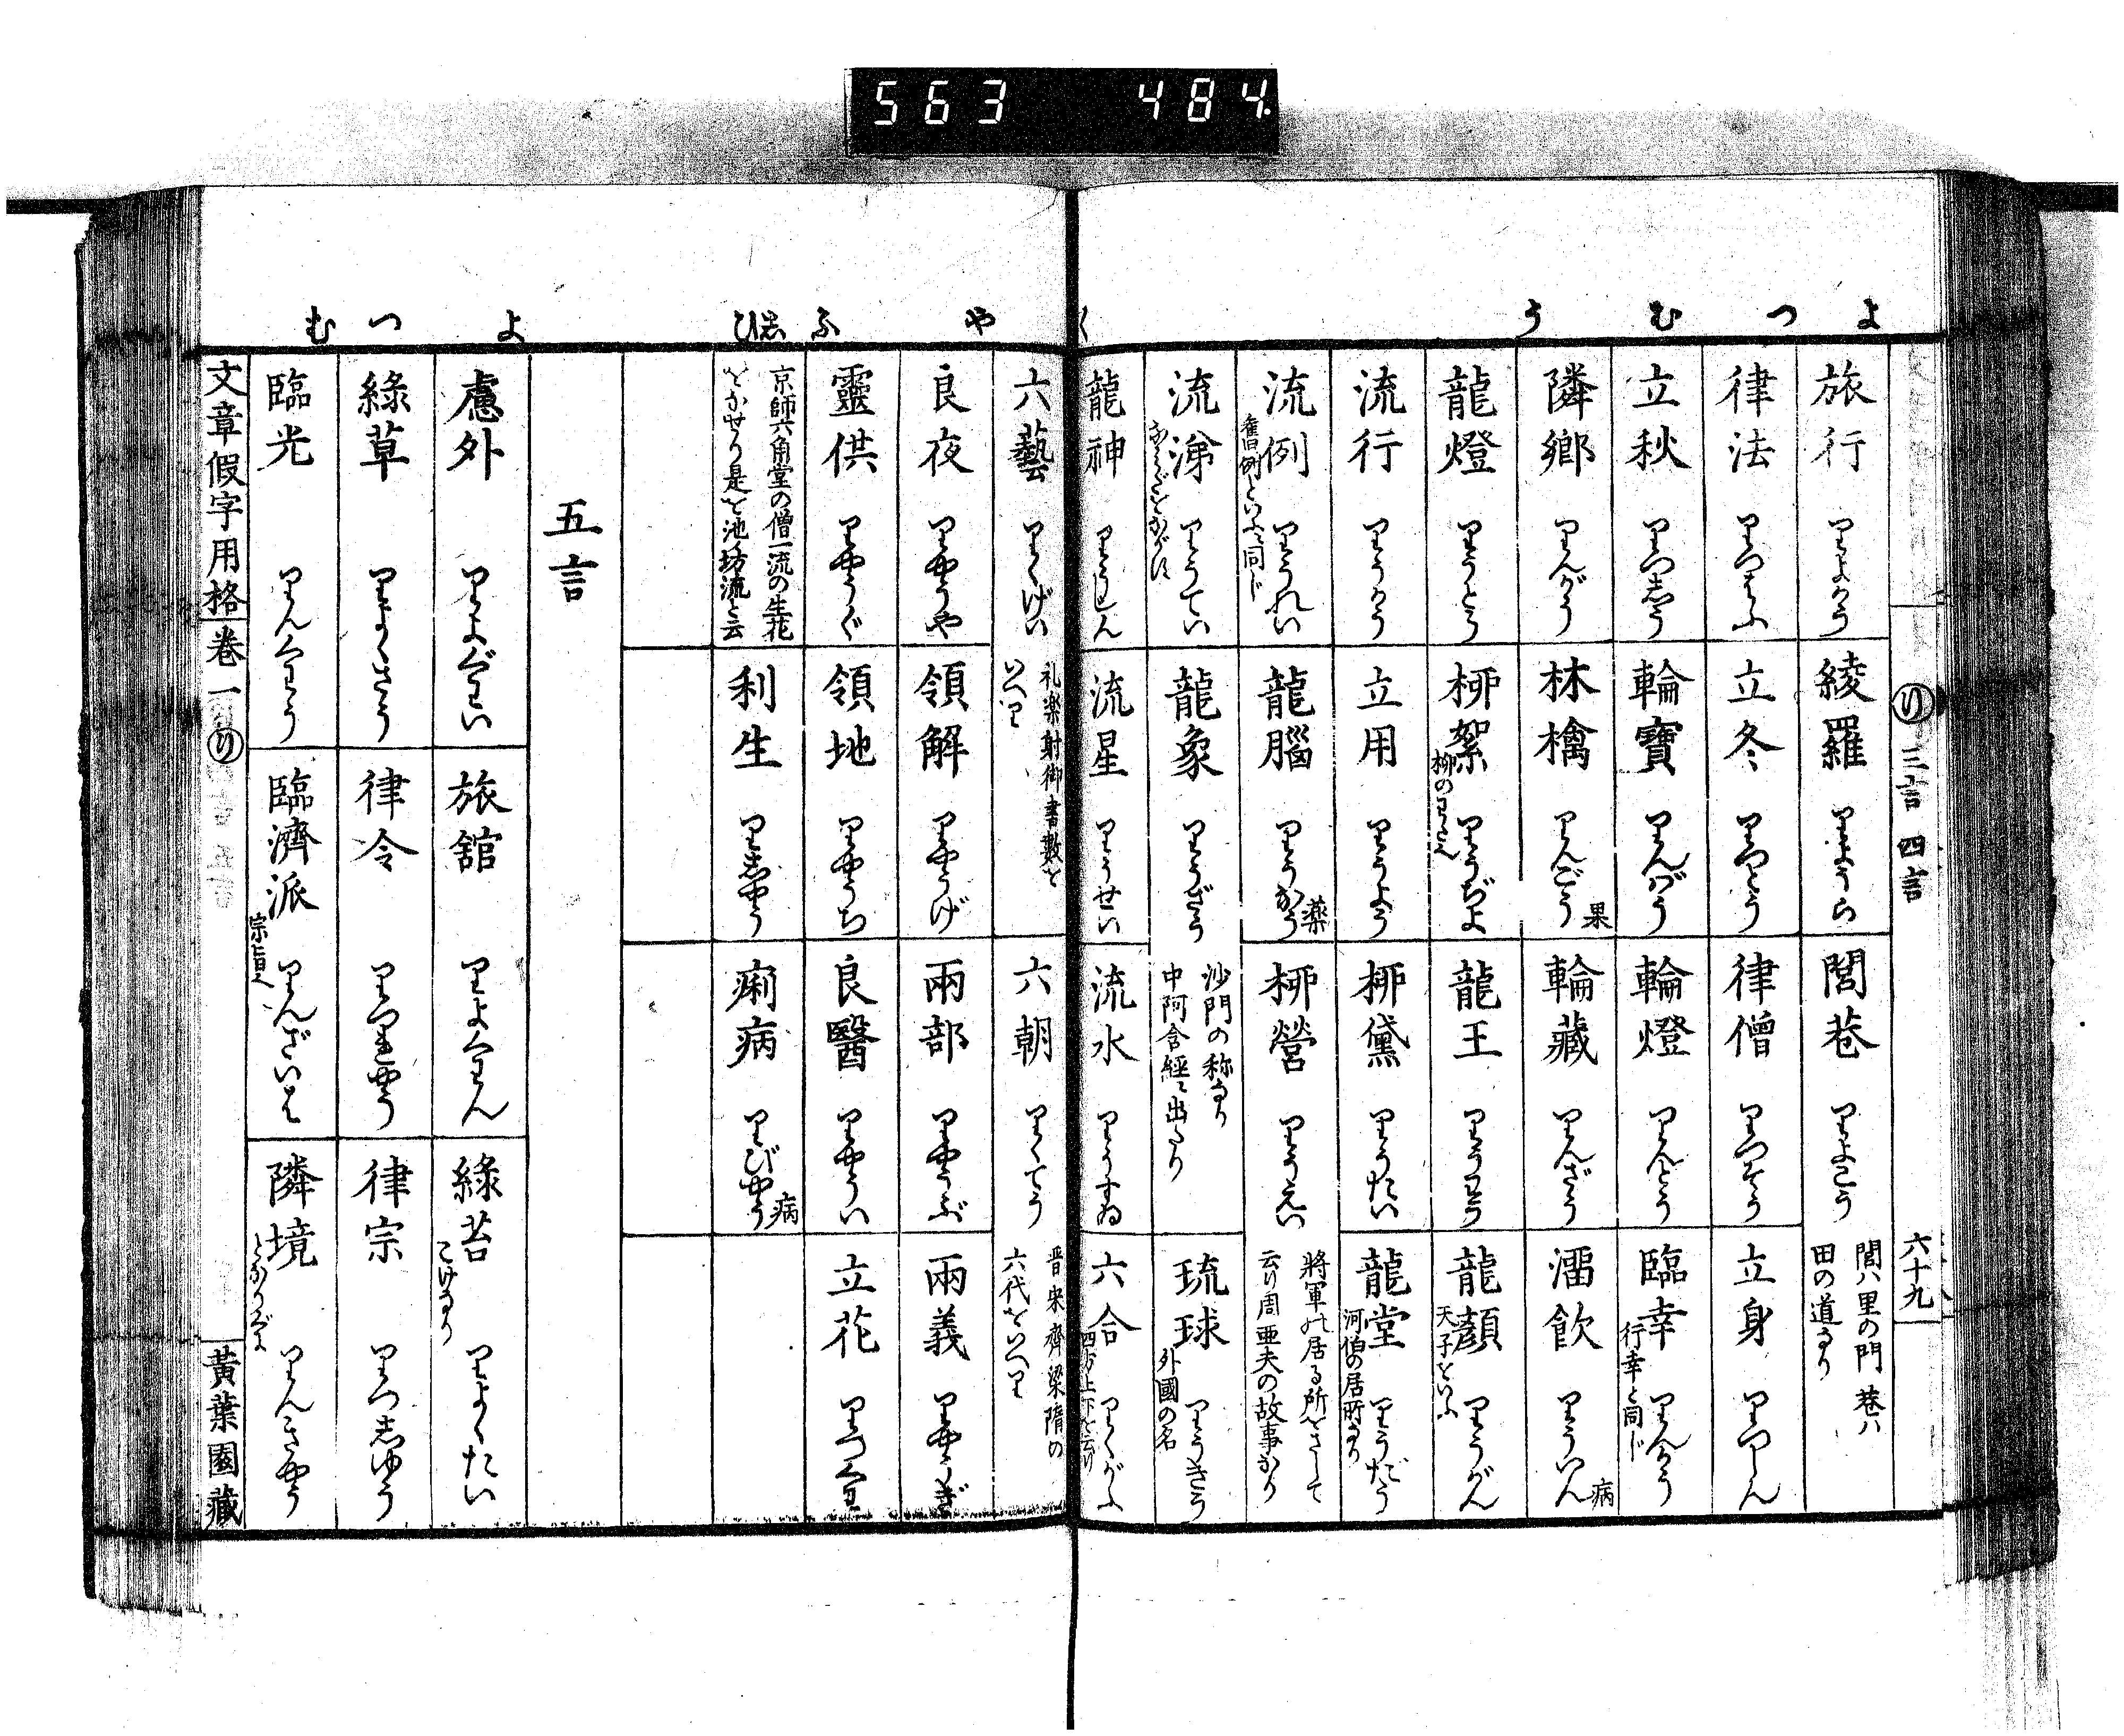 563 484.
よ つ む う く
り 三言 四言 六十九
旅行 りよかう
綾羅 りようら
閭巷 りよこう 閭ハ里の門 巷ハ田の道なり
律法 りつはふ
立冬 りつとう
律僧 りつそう
立身 りつしん
立秋 りつしう
輪寶 りんばう
輪燈 りんとう
臨幸 りんかう 行幸と同じ
隣郷 りんがう
林檎 りんごう 果
輪藏 りんざう
澑飲 りういん 病
龍燈 りうとう
柳絮 りうぢよ 柳のわた也
龍王 りうわう
龍顔 りうがん 天子をいふ
流行 りうかう
立用 りうよう
柳黛 りうたい
龍堂 りうだう 河伯の居所なり
流例 りうれい 舊例といふに同じ
龍腦 りうなう 薬
柳營 りうえい 將軍の居る所をさして云り周亜夫の故事なり
流涕 りうてい なみだをながす
龍象 りうざう 沙門の称なり中阿含經に出たり
琉球 りうきう 外國の名
龍神 りうじん
流星 りうせい
流水 りうすゐ
六合 りくがふ 四方上下を云り
や ふ し ひ よ つ む
六藝 りくげい 礼楽射御書數をいへり
六朝 りくてう 晋宋齊梁隋の六代をいへり
良夜 りやうや
領解 りやうげ
兩部 りやうぶ
兩義 りやうぎ
靈供 りやうぐ
領地 りやうち
良醫 りやうい
立花 りつくわ
京師六角堂の僧一流の生花をなせり是を池坊流と云
利生 りしやう
痢病 りびやう 病
五言
慮外 りよぐわい
旅舘 りよくわん
綠苔 りよくたい こけなり
綠草 りよくさう
律令 りつれやう
律宗 りつしゆう
臨光 りんくわう
臨濟派 りんざいは 宗旨也
隣境 りんきやう となりざかひ
文章假字用格 卷一 り 黄葉園藏